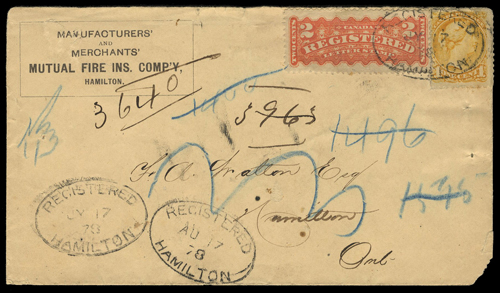 MANUFACTURERS'
AND
MERCHANTS'
MUTUAL FIRE INS. COMP'Y,
HAMILTON,
CANADA
2 REGISTERED 2
LETTER STAMP
REGISTERED
HAMILTON
1
3640
3963
1496
Esq
Hamilton
Ont
REGISTERED
17
78
HAMILTON
REGISTERED
AU 17
78
HAMILTON